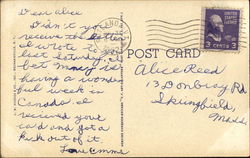 Dear Alice
Didn't you
receive the letter
I wrote to you
last Saturday. I
bet Mony is
having a wonder-
ful week in
Canada. I
received your
card and got a
kick out of it
Love Emma
POST CARD
3 CENTS 3
Alice Reed
13 Bonbury Rd
Springfield,
Mass.